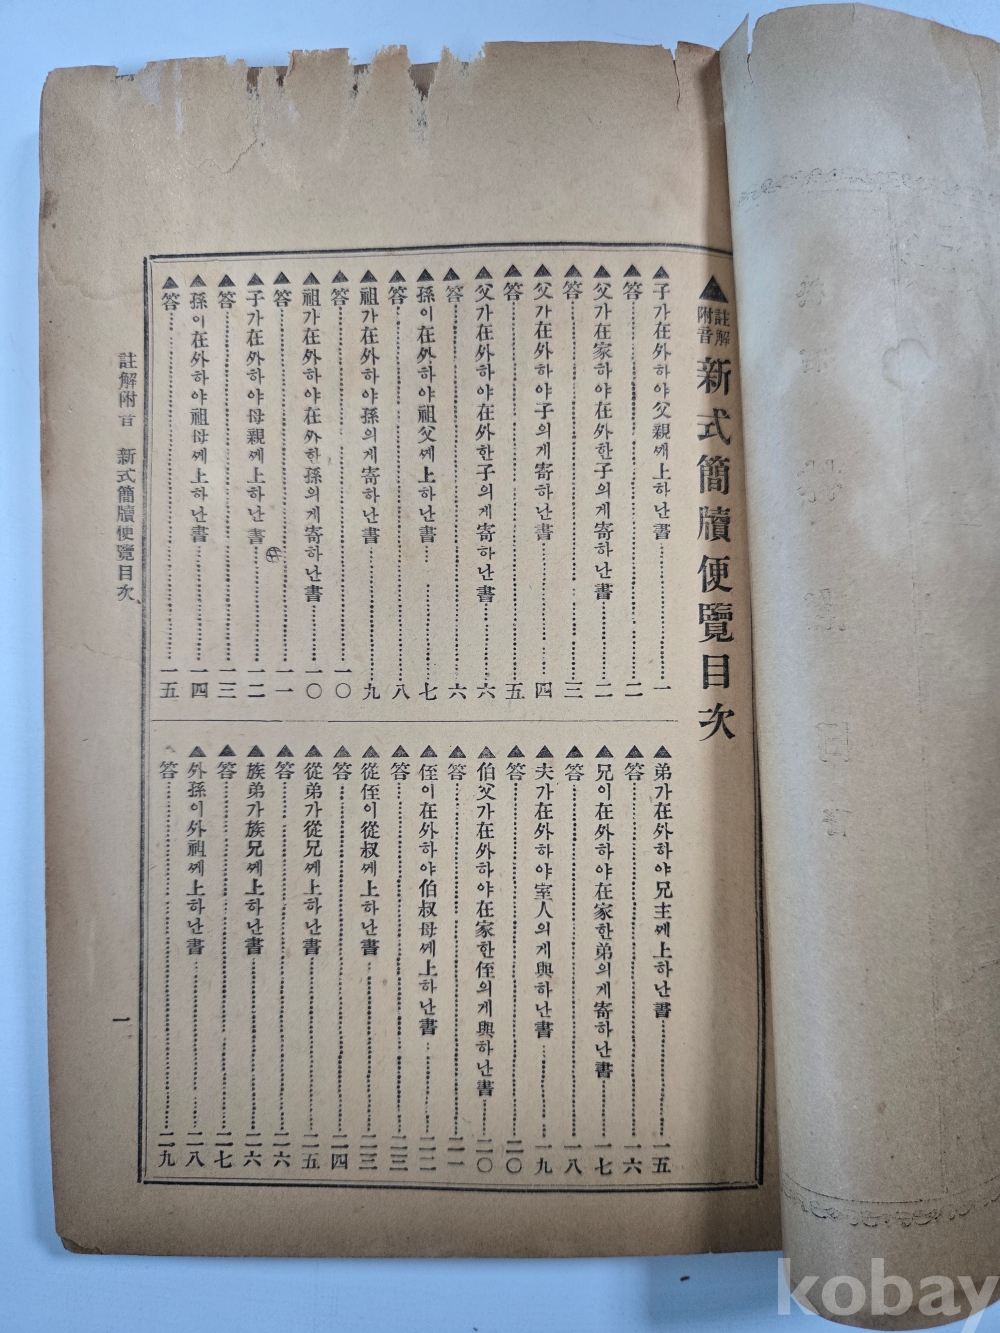 ▲註解附音 新式簡牘便覽目次
▲子가在外하야父親께上하난書 一
▲答 二
▲父가在家하야在外한子의게寄하난書 二
▲答 三
▲父가在外하야子의게寄하난書 四
▲答 五
▲父가在外하야在外한子의게寄하난書 六
▲答 六
▲孫이在外하야祖父께上하난書 七
▲答 八
▲祖가在外하야孫의게寄하난書 九
▲答 一〇
▲祖가在外하야在外한孫의게寄하난書 一〇
▲答 一一
▲子가在外하야母親께上하난書 一二
▲答 一三
▲孫이在外하야祖母께上하난書 一四
▲答 一五
▲弟가在外하야兄主께上하난書 一五
▲答 一六
▲兄이在外하야在家한弟의게寄하난書 一七
▲答 一八
▲夫가在外하야室人의게與하난書 一九
▲答 二〇
▲伯父가在外하야在家한侄의게與하난書 二〇
▲答 二一
▲侄이在外하야伯叔母께上하난書 二二
▲答 二三
▲從侄이從叔께上하난書 二三
▲答 二四
▲從弟가從兄께上하난書 二五
▲答 二六
▲族弟가族兄께上하난書 二六
▲答 二七
▲外孫이外祖께上하난書 二八
▲答 二九
註解附音 新式簡牘便覽目次
一
kobay